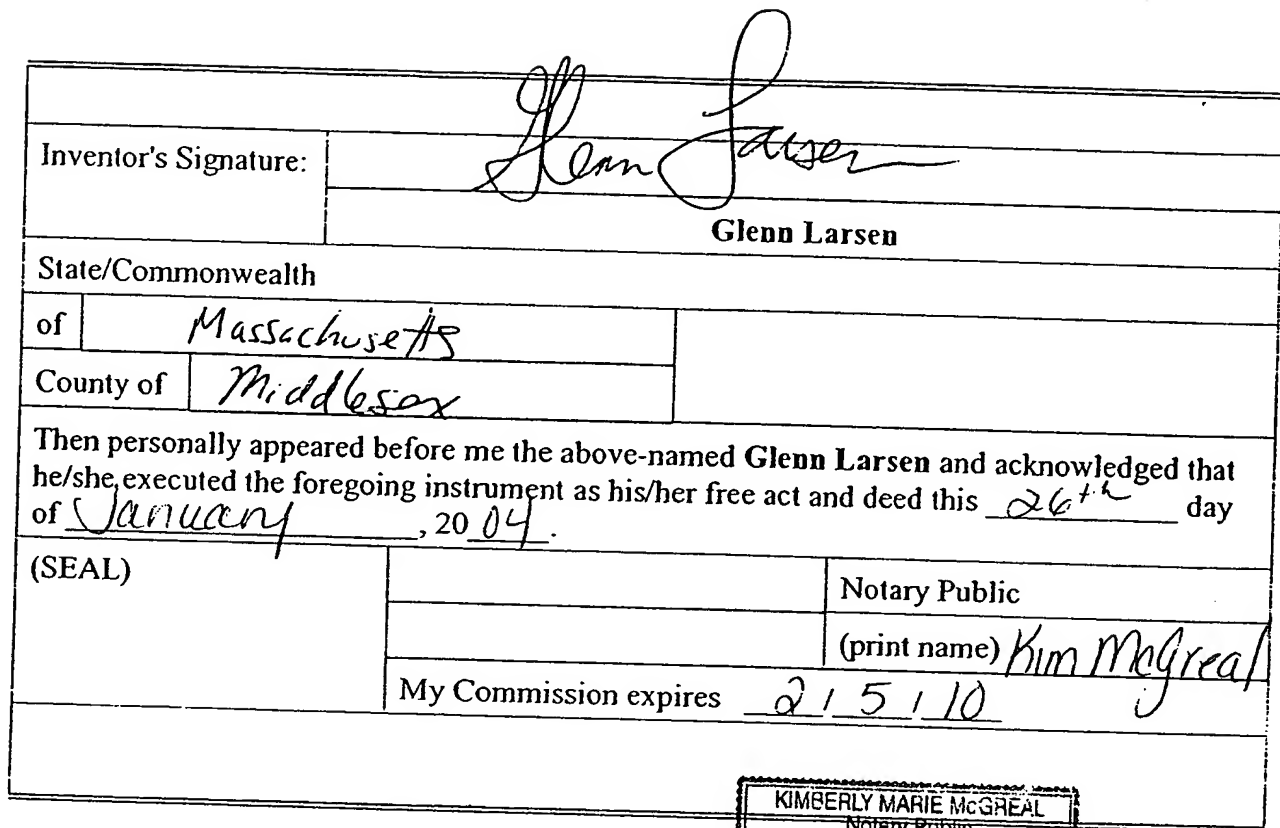 Glenn Larsen
Inventor's Signature:
Glenn Larsen
State/Commonwealth
of Massachusetts
County of Middlesex
Then personally appeared before me the above-named Glenn Larsen and acknowledged that
he/she executed the foregoing instrument as his/her free act and deed this 26th day
of January, 2004.
(SEAL)
Notary Public
(print name) Kim McGreal
My Commission expires 2/5/10
KIMBERLY MARIE McGREAL
Notary Public